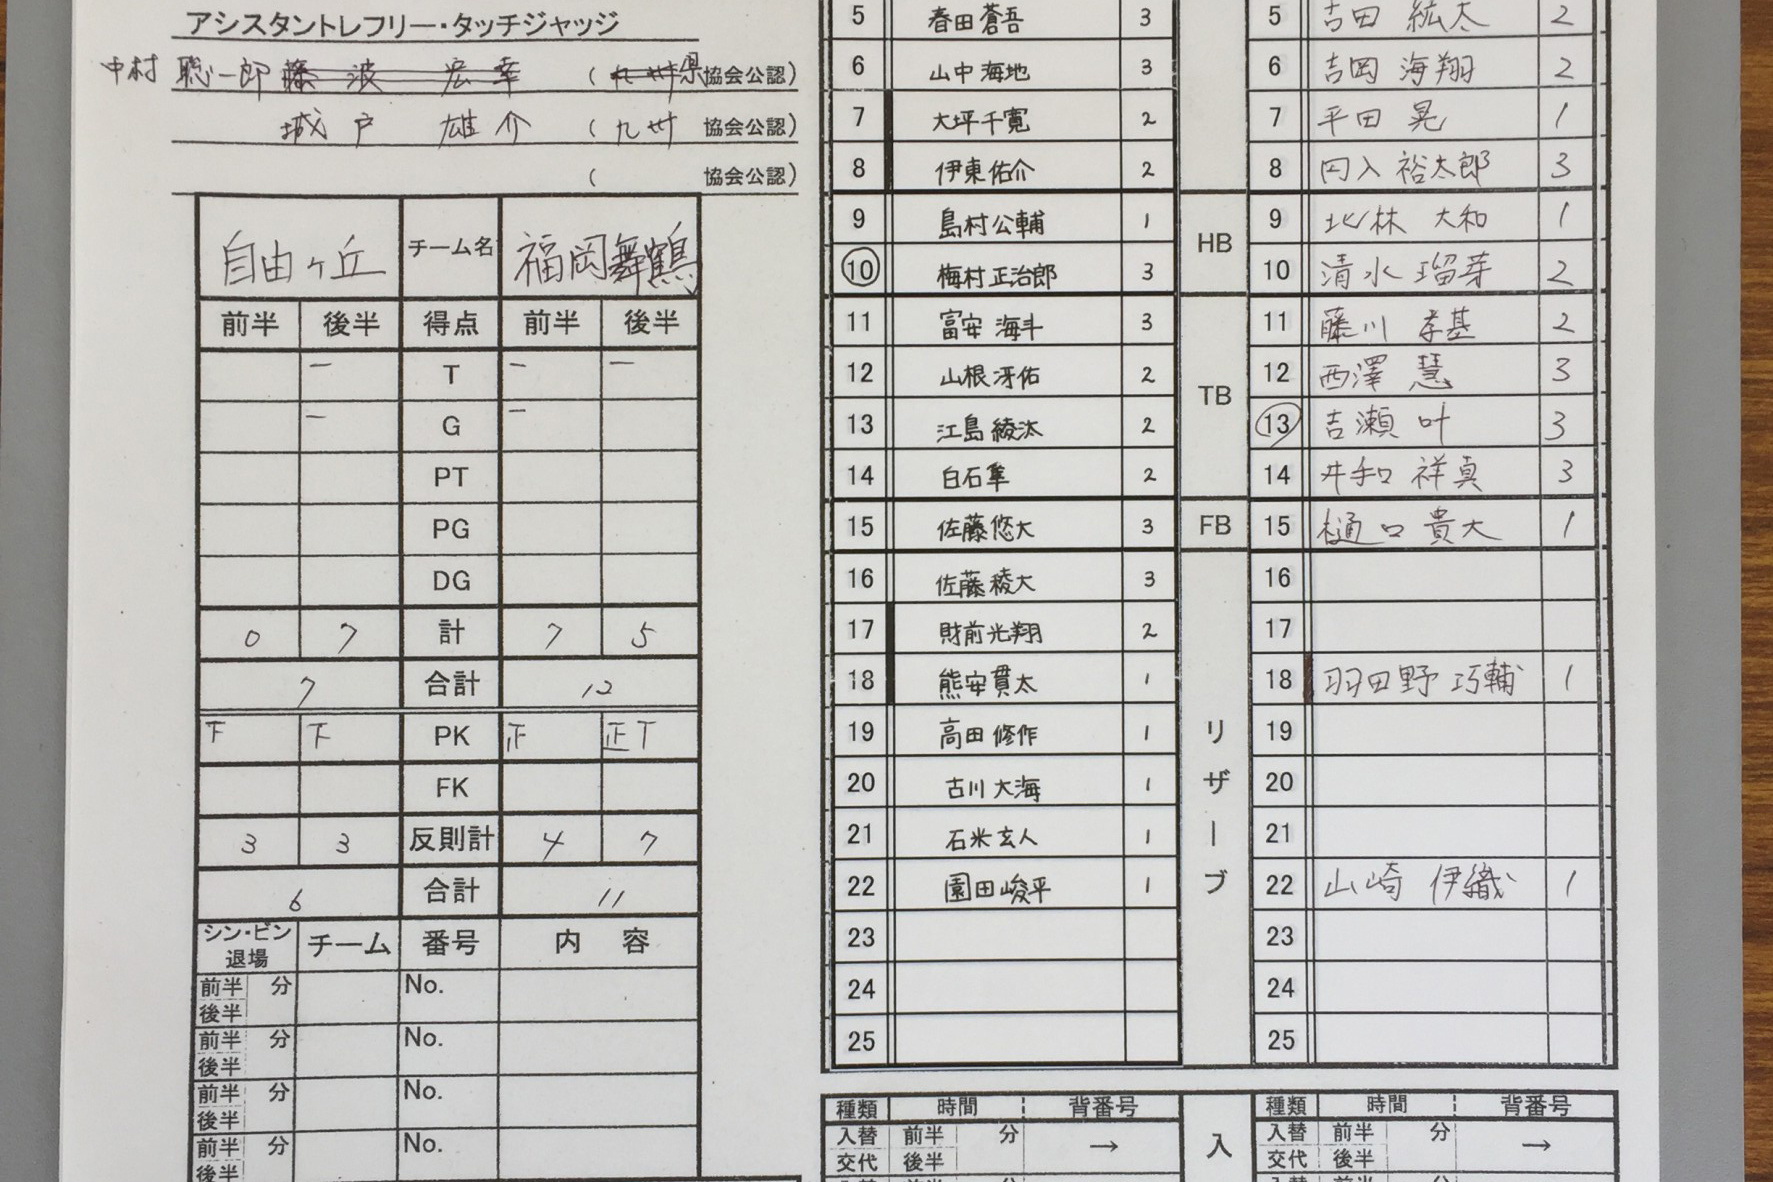 アシスタントレフリー・タッチジャッジ
中村 聡一郎 藤 波 宏 幸 ( 九州県協会公認)
城 戸 雄 介 ( 九州 協会公認)
( 協会公認)
自由ヶ丘 チーム名 福岡舞鶴
前半 後半 得点 前半 後半
一 T 一 一
一 G 一
PT
PG
DG
0 7 計 7 5
7 合計 12
下 下 PK 正 正丅
FK
3 3 反則計 4 7
6 合計 11
シン・ビン 退場 チーム 番号 内 容
前半 分 No.
後半
前半 分 No.
後半
前半 分 No.
後半
前半 分 No.
後半
5 春田蒼吾 3 5 吉田 紘太 2
6 山中海地 3 6 吉岡 海翔 2
7 大坪千寛 2 7 平田 晃 1
8 伊東佑介 2 8 円入 裕太郎 3
9 島村公輔 1 HB 9 北林 大和 1
10 梅村正治郎 3 10 清水 瑠芽 2
11 富安 海斗 3 11 藤川 孝基 2
12 山根冴佑 2 TB 12 西澤 慧 3
13 江島綾汰 2 13 吉瀬 叶 3
14 白石隼 2 14 井和 祥真 3
15 佐藤悠大 3 FB 15 樋口 貴大 1
16 佐藤稜大 3 16
17 財前光翔 2 17
18 熊安貫太 1 18 羽田野 巧輔 1
19 高田修作 1 リザーブ 19
20 古川大海 1 20
21 石米玄人 1 21
22 園田峻平 1 22 山崎 伊織 1
23 23
24 24
25 25
種類 時間 背番号 種類 時間 背番号
入替 前半 分 → 入 入替 前半 分 →
交代 後半 交代 後半
入替 前半 分 入替 前半 分